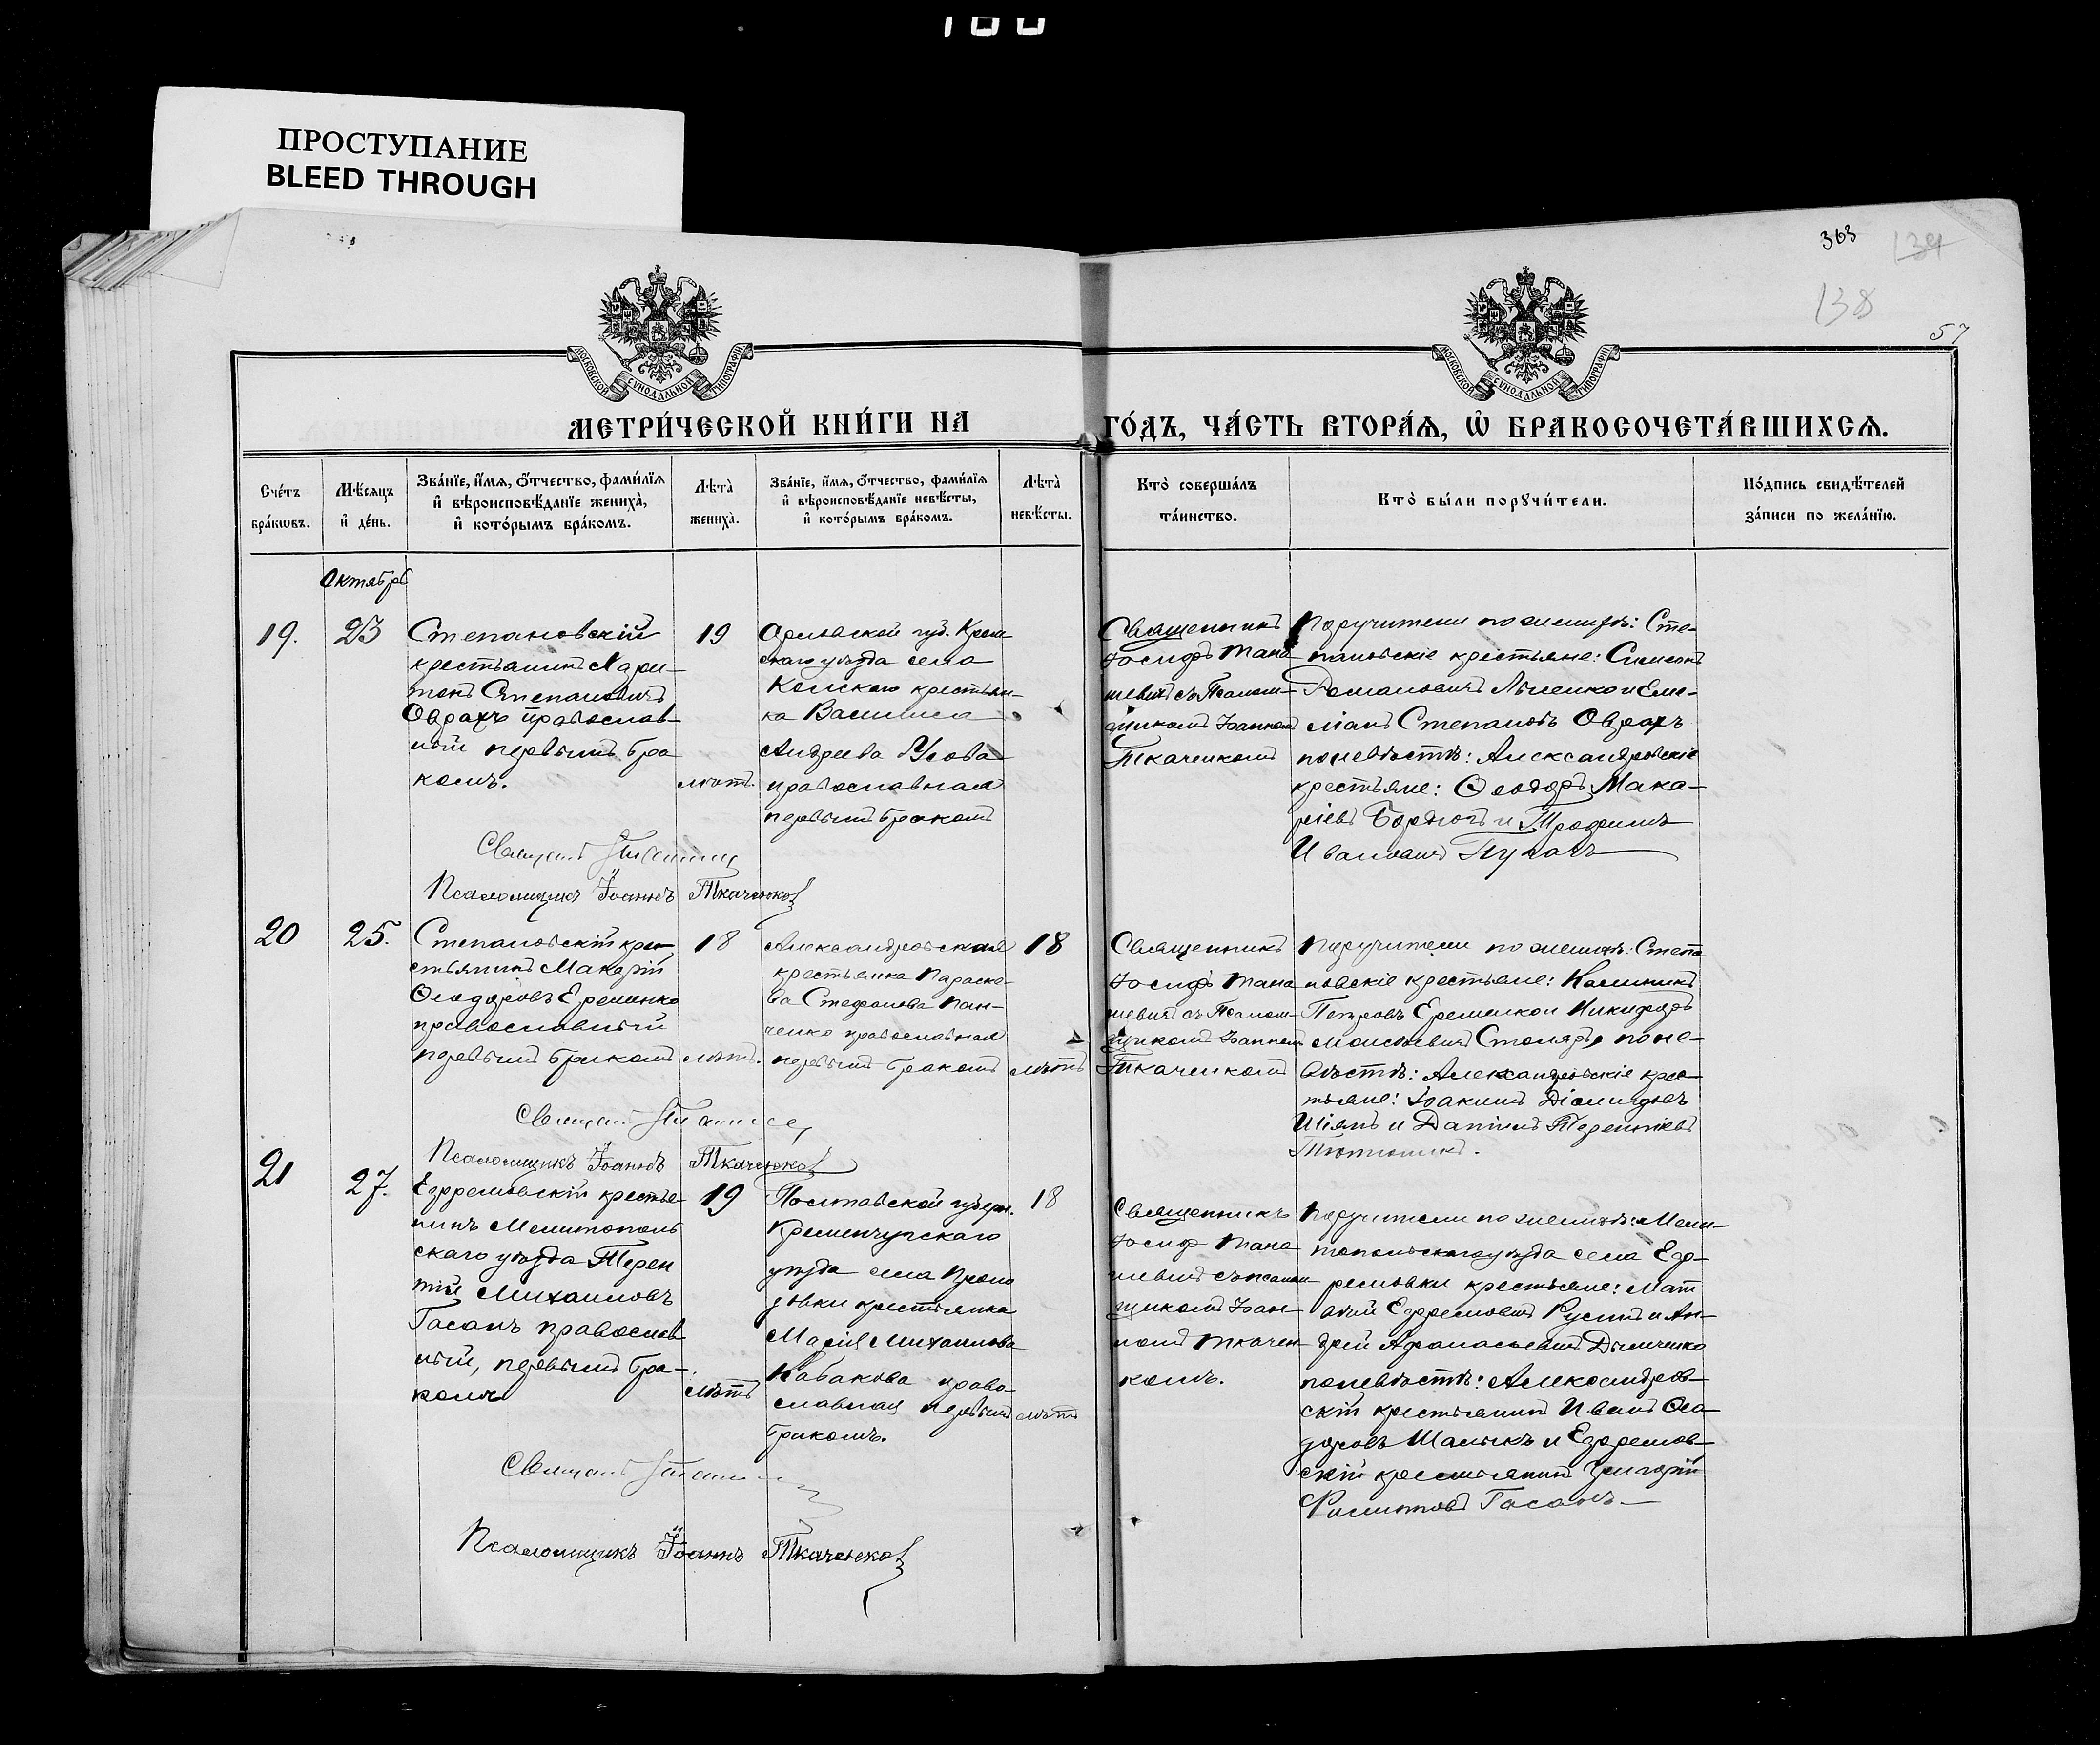 ПРОСТУПАНИЕ
BLEED THROUGH
363
134
138
57
МОСКОВСКОЙ СѴНОДАЛЬНОЙ ТИПОГРАФІИ
МОСКОВСКОЙ СѴНОДАЛЬНОЙ ТИПОГРАФІИ
МЕТРИ́ЧЕСКОЙ КНИ́ГИ НА
ГО́ДЪ, ЧА́СТЬ ВТОРА́Ѧ, Ѡ БРАКОСОЧЕТА́ВШИХСѦ.
Сче́тъ
бра́кѡвъ.
Мѣ́сѧцъ
и҆ де́нь.
Зва́нїе, и҆́мѧ, ѻ҆́тчество, фами́лїѧ
и҆ вѣроисповѣ́данїе жениха̀,
и҆ кото́рымъ бра́комъ.
Лѣта̀
жениха̀.
Зва́нїе, и҆́мѧ, ѻ҆́тчество, фами́лїѧ
и҆ вѣроисповѣ́данїе невѣ́сты,
и҆ кото́рымъ бра́комъ.
Лѣта̀
невѣ́сты.
Кто̀ соверша́лъ
та́инство.
Кто̀ бы́ли порꙋчи́тели.
По́дпись свидѣ́телей
за́писи по жела́нїю.
Октябрь
19.
23
Степановскій
крестьянинъ Хари-
тонъ Степановичъ
Оврахъ православ-
ный первымъ бра
комъ.
19
лѣтъ.
Орловской губ. Кром
скаго уѣзда села
крестьян-
ка Василиса
Андреева
православная
первымъ бракомъ
Священникъ
Іосифъ Тана
шевичъ съ Псалом-
щикомъ Іоанномъ
Ткаченкомъ
Поручители по женихѣ: Сте-
пановскіе крестьяне: Симеонъ
Романовичъ и Еме-
ліанъ Степановъ Оврахъ
по невѣстѣ: Александровскіе
крестьяне: Ѳеодоръ Мака-
ріевъ и Трофимъ
Ивановичъ
Священ.
Псаломщикъ Іоаннъ Ткаченко
20
25.
Степановскій кре-
стьянинъ Макарій
Ѳеодоровъ Еременко
православный
первымъ бракомъ
18
лѣтъ.
Александровская
крестьянка Параске-
ва Стефанова Пан-
ченко православная
первымъ бракомъ
18
лѣтъ
Священникъ
Іосифъ Тана
шевичъ съ Псалом-
щикомъ Іоанномъ
Ткаченкомъ
Поручители по женихѣ: Степа
новскіе крестьяне: Калиникъ
Петровъ Еременко и Никифоръ
Моисѣевичъ Столяръ, по не-
вѣстѣ: Александровскіе крес-
тьяне: Іоакимъ Діомидовъ
Шіянъ и Даніилъ Терентіевъ
Тютюникъ.
Священ.
Псаломщикъ Іоаннъ Ткаченко
21
27.
Ефремовскій крестья
нинъ Мелитополь
скаго уѣзда Терен
тій Михаиловъ
Гасанъ православ
ный, первымъ бра-
комъ
19
лѣтъ
Полтавской губерн.
Кременчугскаго
уѣзда села
крестьянка
Марія Михаилова
Кабакова право-
славная первымъ
бракомъ.
18
лѣтъ
Священникъ
Іосиф Тана
шевичъ съ псалом
щикомъ Іоан-
номъ Ткачен-
комъ.
Поручители по женихѣ: Мели-
топольскаго уѣзда села Еф-
ремовки крестьяне: Мат
вѣй Ефремовичъ и Ан-
дрей Афанасьевичъ Дымченко
по невѣстѣ: Александров-
скій крестьянинъ Иванъ Ѳео-
доровъ и Ефремов-
скій крестьянинъ Григорій
Филиповъ Гасанъ
Священ.
Псаломщикъ Іоаннъ Ткаченко